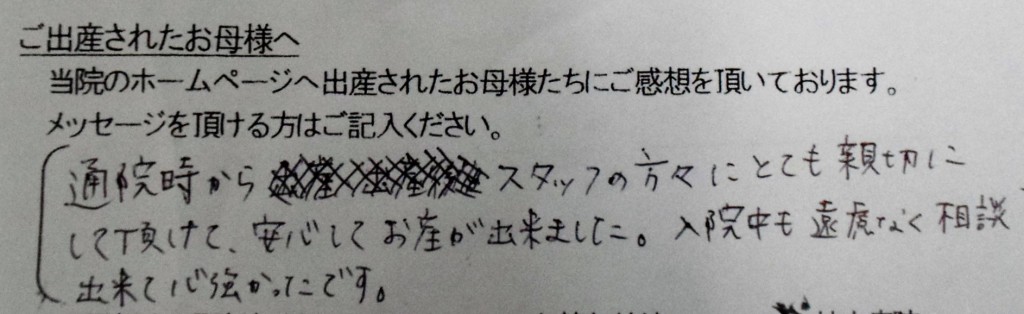 ご出産されたお母様へ
当院のホームページへ出産されたお母様たちにご感想を頂いております。
メッセージを頂ける方はご記入ください。
通院時から スタッフの方々にとても親切に
して頂けて、安心してお産が出来ました。入院中も遠慮なく相談
出来て心強かったです。